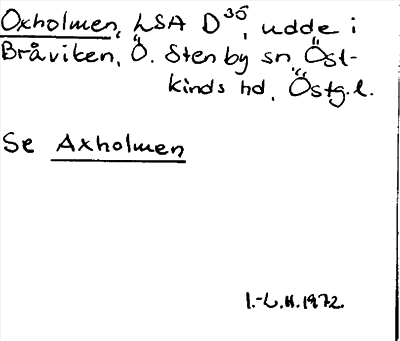 Oxholmen, LSA D³⁵, udde i
Bråviken, Ö. Stenby sn, Öst-
kinds hd, Östg.l.
Se Axholmen
I.-L.H.1972.